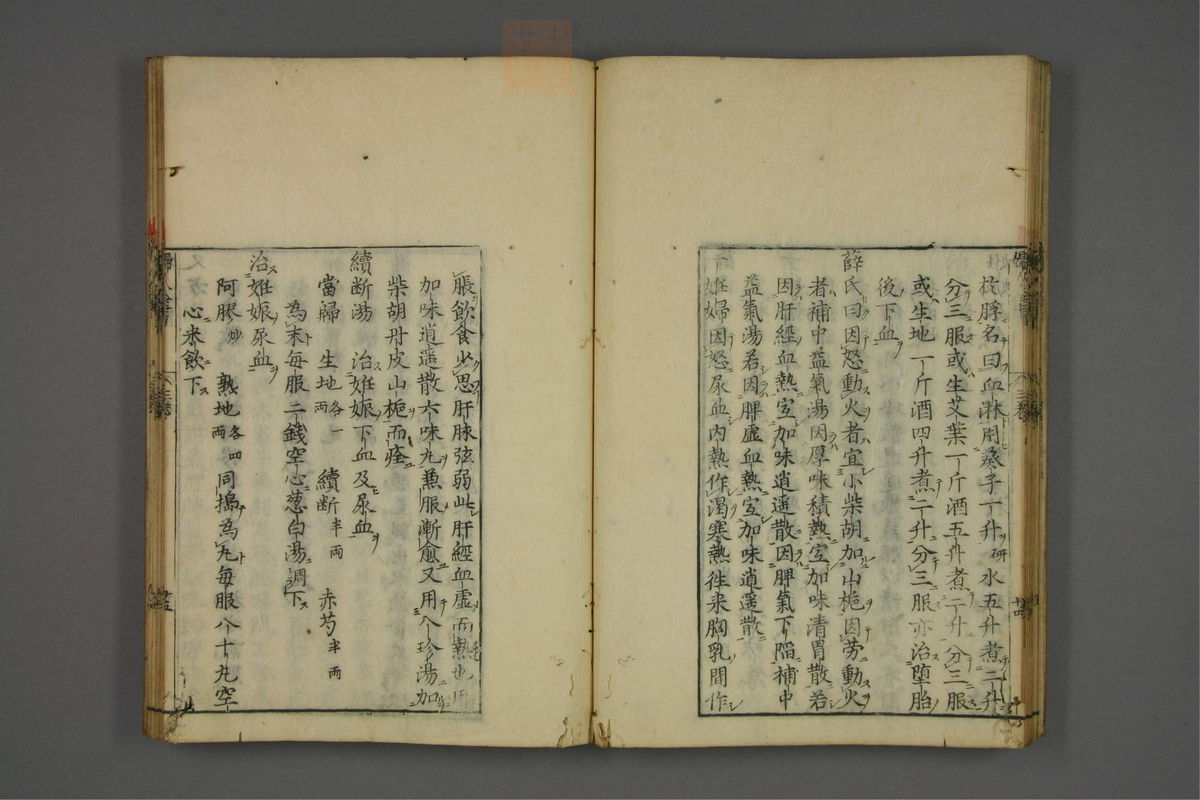 於脬名曰血淋用葵子一升研水五升煮二升
分三服或生艾葉一斤酒五升煮二升分三服
或生地一斤酒四升煮二升分三服亦治墮胎
後下血
薛氏曰因怒動火者宜小柴胡加山梔因勞動火
者補中益氣湯因厚味積熱宜加味清胃散若
因肝經血熱宜加味逍遥散因脾氣下陷補中
益氣湯若因脾虚血熱宜加味逍遥散
一妊婦因怒尿血内熱作渴寒熱徃来胸乳間作
脹飲食少思肝脉弦弱此肝經血虚而熱也用
加味逍遥散六味丸兼服漸愈又用八珍湯加
柴胡丹皮山梔而痊
續断湯 治姙娠下血及尿血
當歸 生地各一両 續断半両 赤芍半両
為末毎服二錢空心葱白湯調下
治姙娠尿血
阿膠炒 熟地各四両 同搗為丸毎服八十丸空
心米飲下